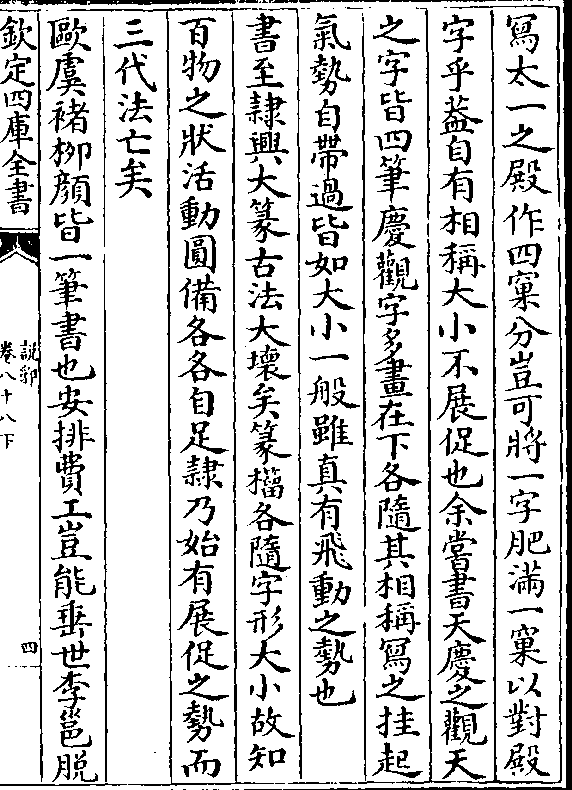 寫太一之殿作四窠分豈可將一字肥滿一窠以對殿
字乎葢自有相稱大小不展促也余嘗書天慶之觀天
之字皆四筆慶觀字多畫在下各隨其相稱寫之挂起
氣勢自帶過皆如大小一般雖真有飛動之勢也
書至隷興大篆古法大壞矣篆籀各隨字形大小故知
百物之狀活動圓備各各自足隷乃始有展促之勢而
三代法亡矣
歐虞褚柳顔皆一筆書也安排費工豈能垂世李邕脱
欽定四庫全書
說郛
卷八十八下
四